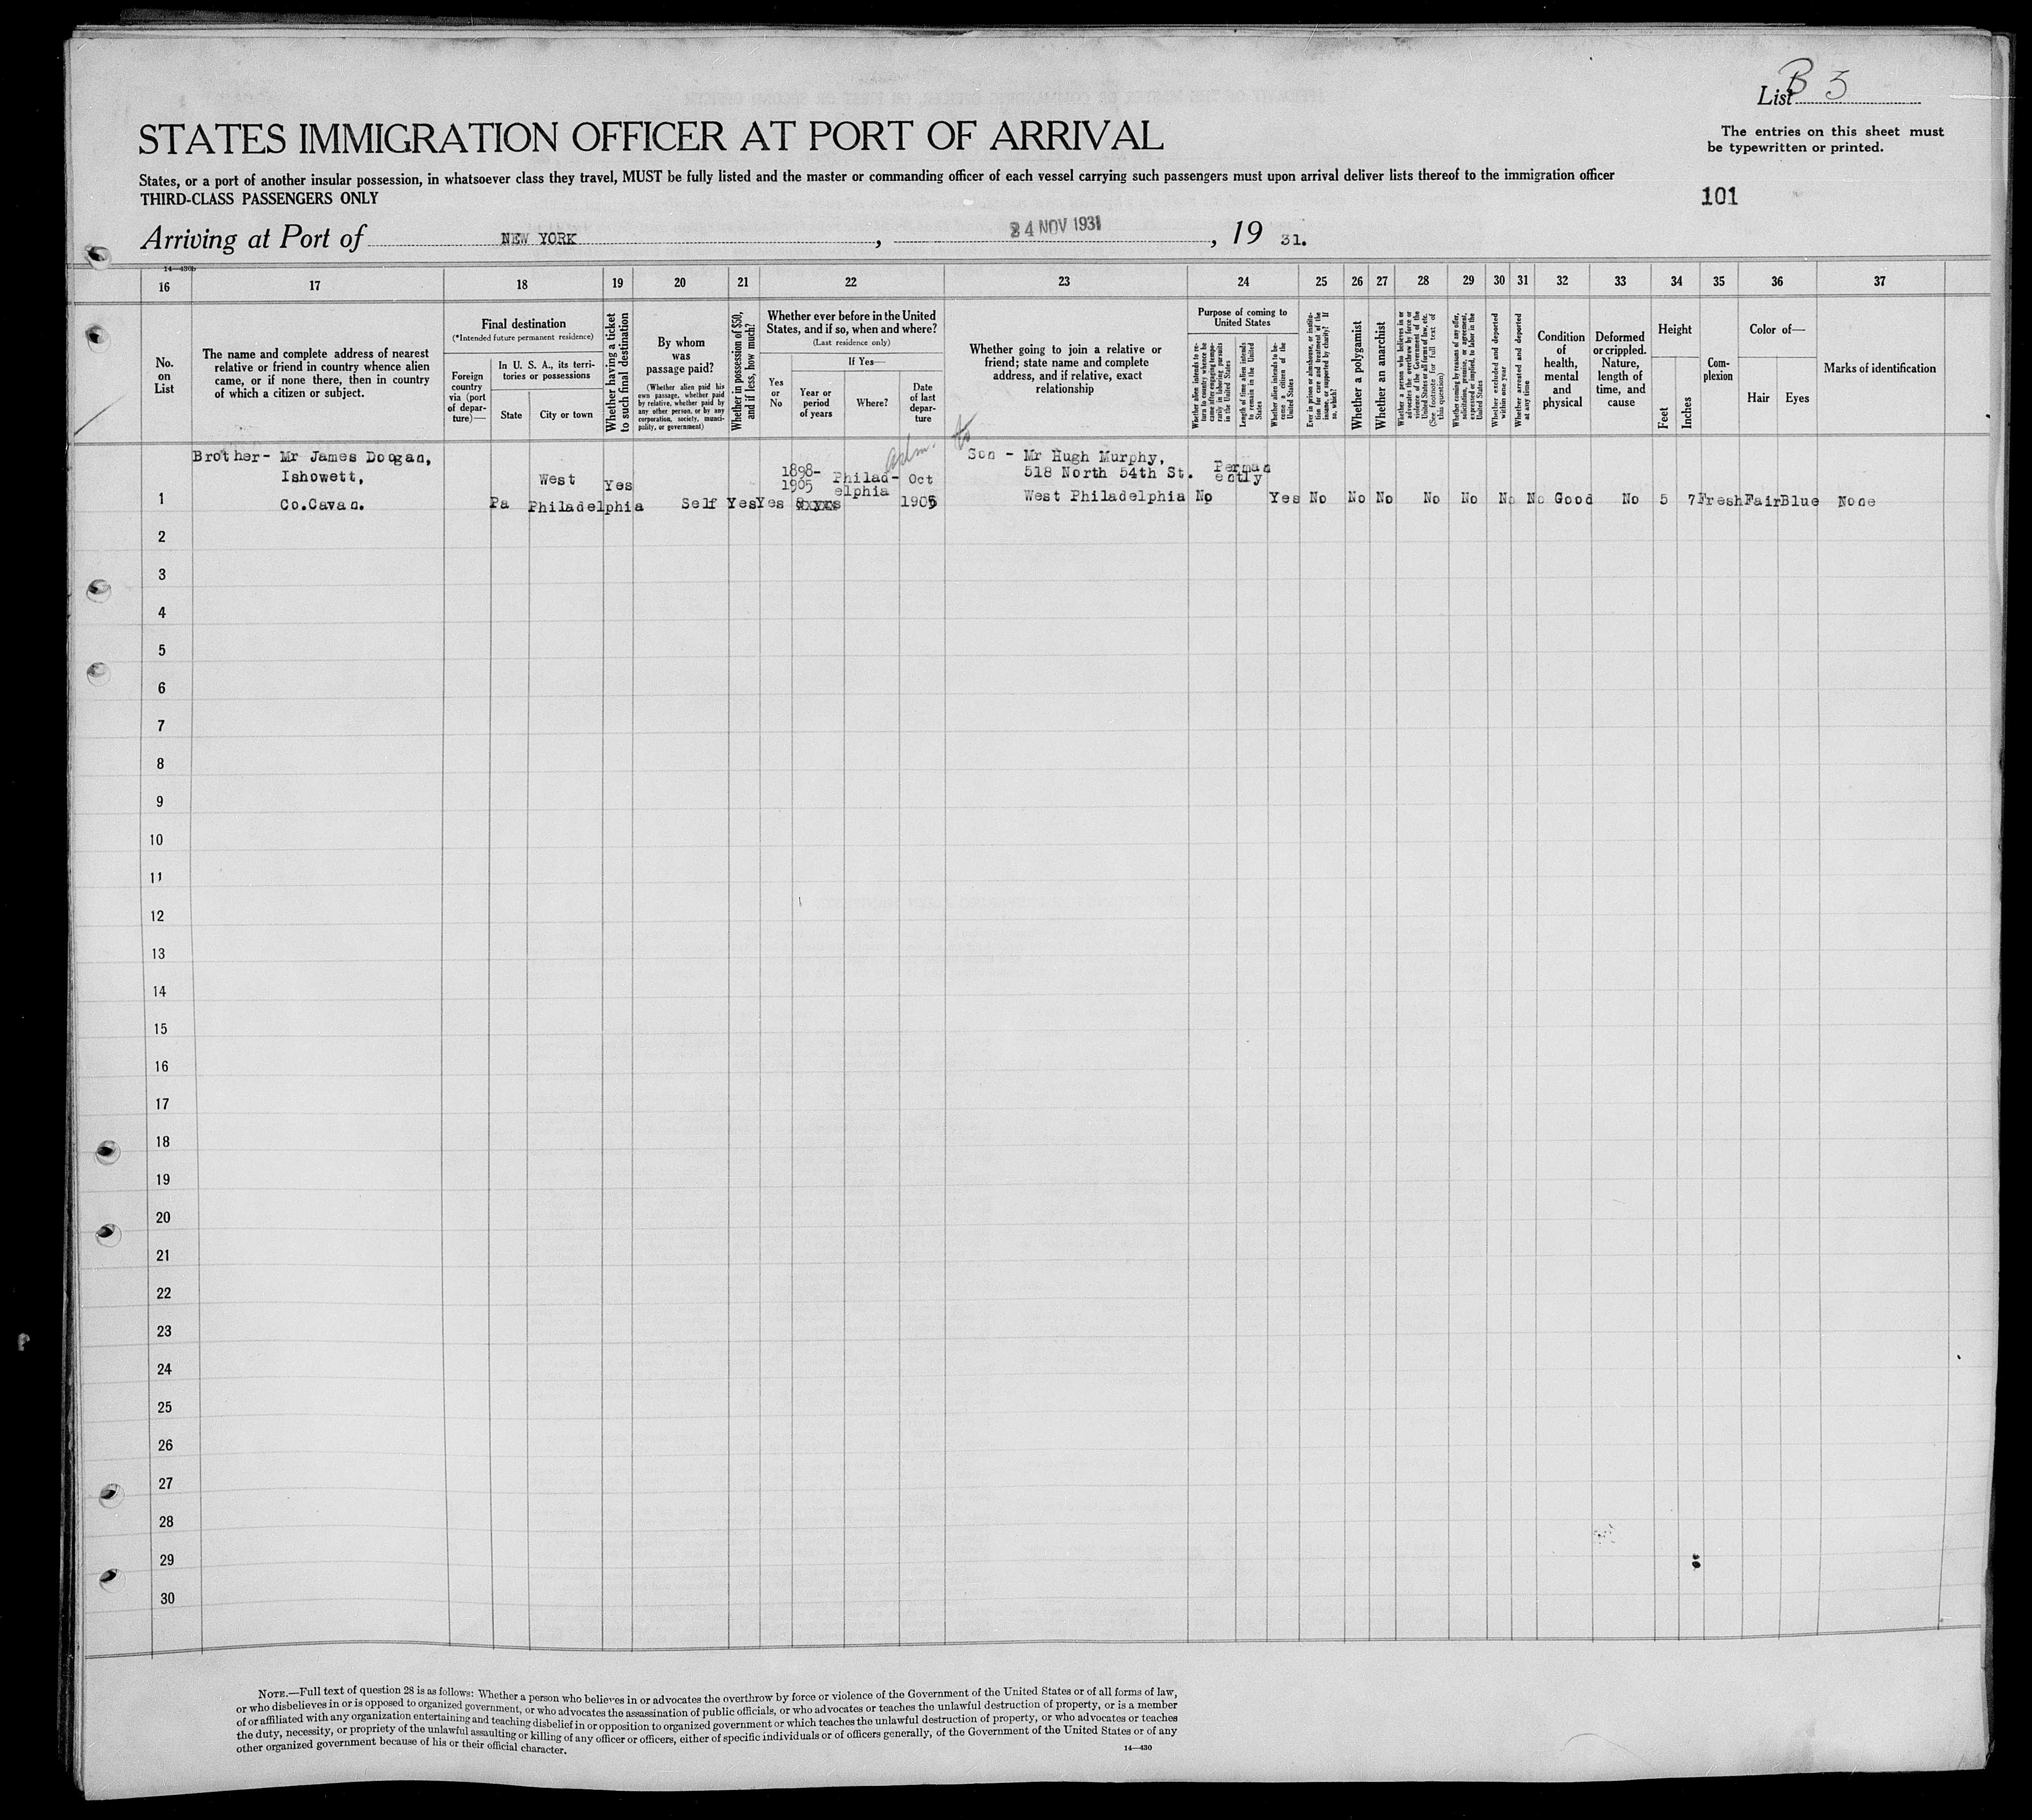 List B 3
The entries on this sheet must
be typewritten or printed.
STATES IMMIGRATION OFFICER AT PORT OF ARRIVAL
States, or a port of another insular possession, in whatsoever class they travel, MUST be fully listed and the master or commanding officer of each vessel carrying such passengers must upon arrival deliver lists thereof to the immigration officer
THIRD-CLASS PASSENGERS ONLY
101
Arriving at Port of NEW YORK, 24 NOV 1931, 19 31.
14—430b
16 17 18 19 20 21 22 23 24 25 26 27 28 29 30 31 32 33 34 35 36 37
No.
on
List
The name and complete address of nearest
relative or friend in country whence alien
came, or if none there, then in country
of which a citizen or subject.
Final destination
(*Intended future permanent residence)
Foreign
country
via (port
of depar-
ture)—
In U. S. A., its terri-
tories or possessions
State
City or town
Whether having a ticket
to such final destination
By whom
was
passage paid?
(Whether alien paid his
own passage, whether paid
by relative, whether paid by
any other person, or by any
corporation, society, munici-
pality, or government)
Whether in possession of $50,
and if less, how much?
Whether ever before in the United
States, and if so, when and where?
(Last residence only)
Yes
or
No
If Yes—
Year or
period
of years
Where?
Date
of last
depar-
ture
Whether going to join a relative or
friend; state name and complete
address, and if relative, exact
relationship
Purpose of coming to
United States
Whether alien intends to re-
turn to country whence he
came after engaging tempo-
rarily in laboring pursuits
in the United States
Length of time alien intends
to remain in the United
States
Whether alien intends to be-
come a citizen of the
United States
Ever in prison or almshouse, or institu-
tion for care and treatment of the
insane, or supported by charity? If
so, which?
Whether a polygamist
Whether an anarchist
Whether a person who believes in or
advocates the overthrow by force or
violence of the Government of the
United States or all forms of law, etc.
(See footnote for full text of
this question)
Whether coming by reasons of any offer,
solicitation, promise, or agreement,
expressed or implied, to labor in the
United States
Whether excluded and deported
within one year
Whether arrested and deported
at any time
Condition
of
health,
mental
and
physical
Deformed
or crippled.
Nature,
length of
time, and
cause
Height
Feet
Inches
Com-
plexion
Color of—
Hair
Eyes
Marks of identification
adm.
to
Brother- Mr James Doogan,
Ishowett,
Co.Cavan.
1 Pa West Philadelphia Yes Self Yes Yes 1898-1905 Philad-elphia Oct 1905
Son - Mr Hugh Murphy,
518 North 54th St.
West Philadelphia
No Perman ently Yes No No No No No No No Good No 5 7 Fresh Fair Blue None
2
3
4
5
6
7
8
9
10
11
12
13
14
15
16
17
18
19
20
21
22
23
24
25
26
27
28
29
30
NOTE.—Full text of question 28 is as follows: Whether a person who believes in or advocates the overthrow by force or violence of the Government of the United States or of all forms of law,
or who disbelieves in or is opposed to organized government, or who advocates the assassination of public officials, or who advocates or teaches the unlawful destruction of property, or is a member
of or affiliated with any organization entertaining and teaching disbelief in or opposition to organized government or which teaches the unlawful destruction of property, or who advocates or teaches
the duty, necessity, or propriety of the unlawful assaulting or killing of any officer or officers, either of specific individuals or of officers generally, of the Government of the United States or of any
other organized government because of his or their official character.
14—430